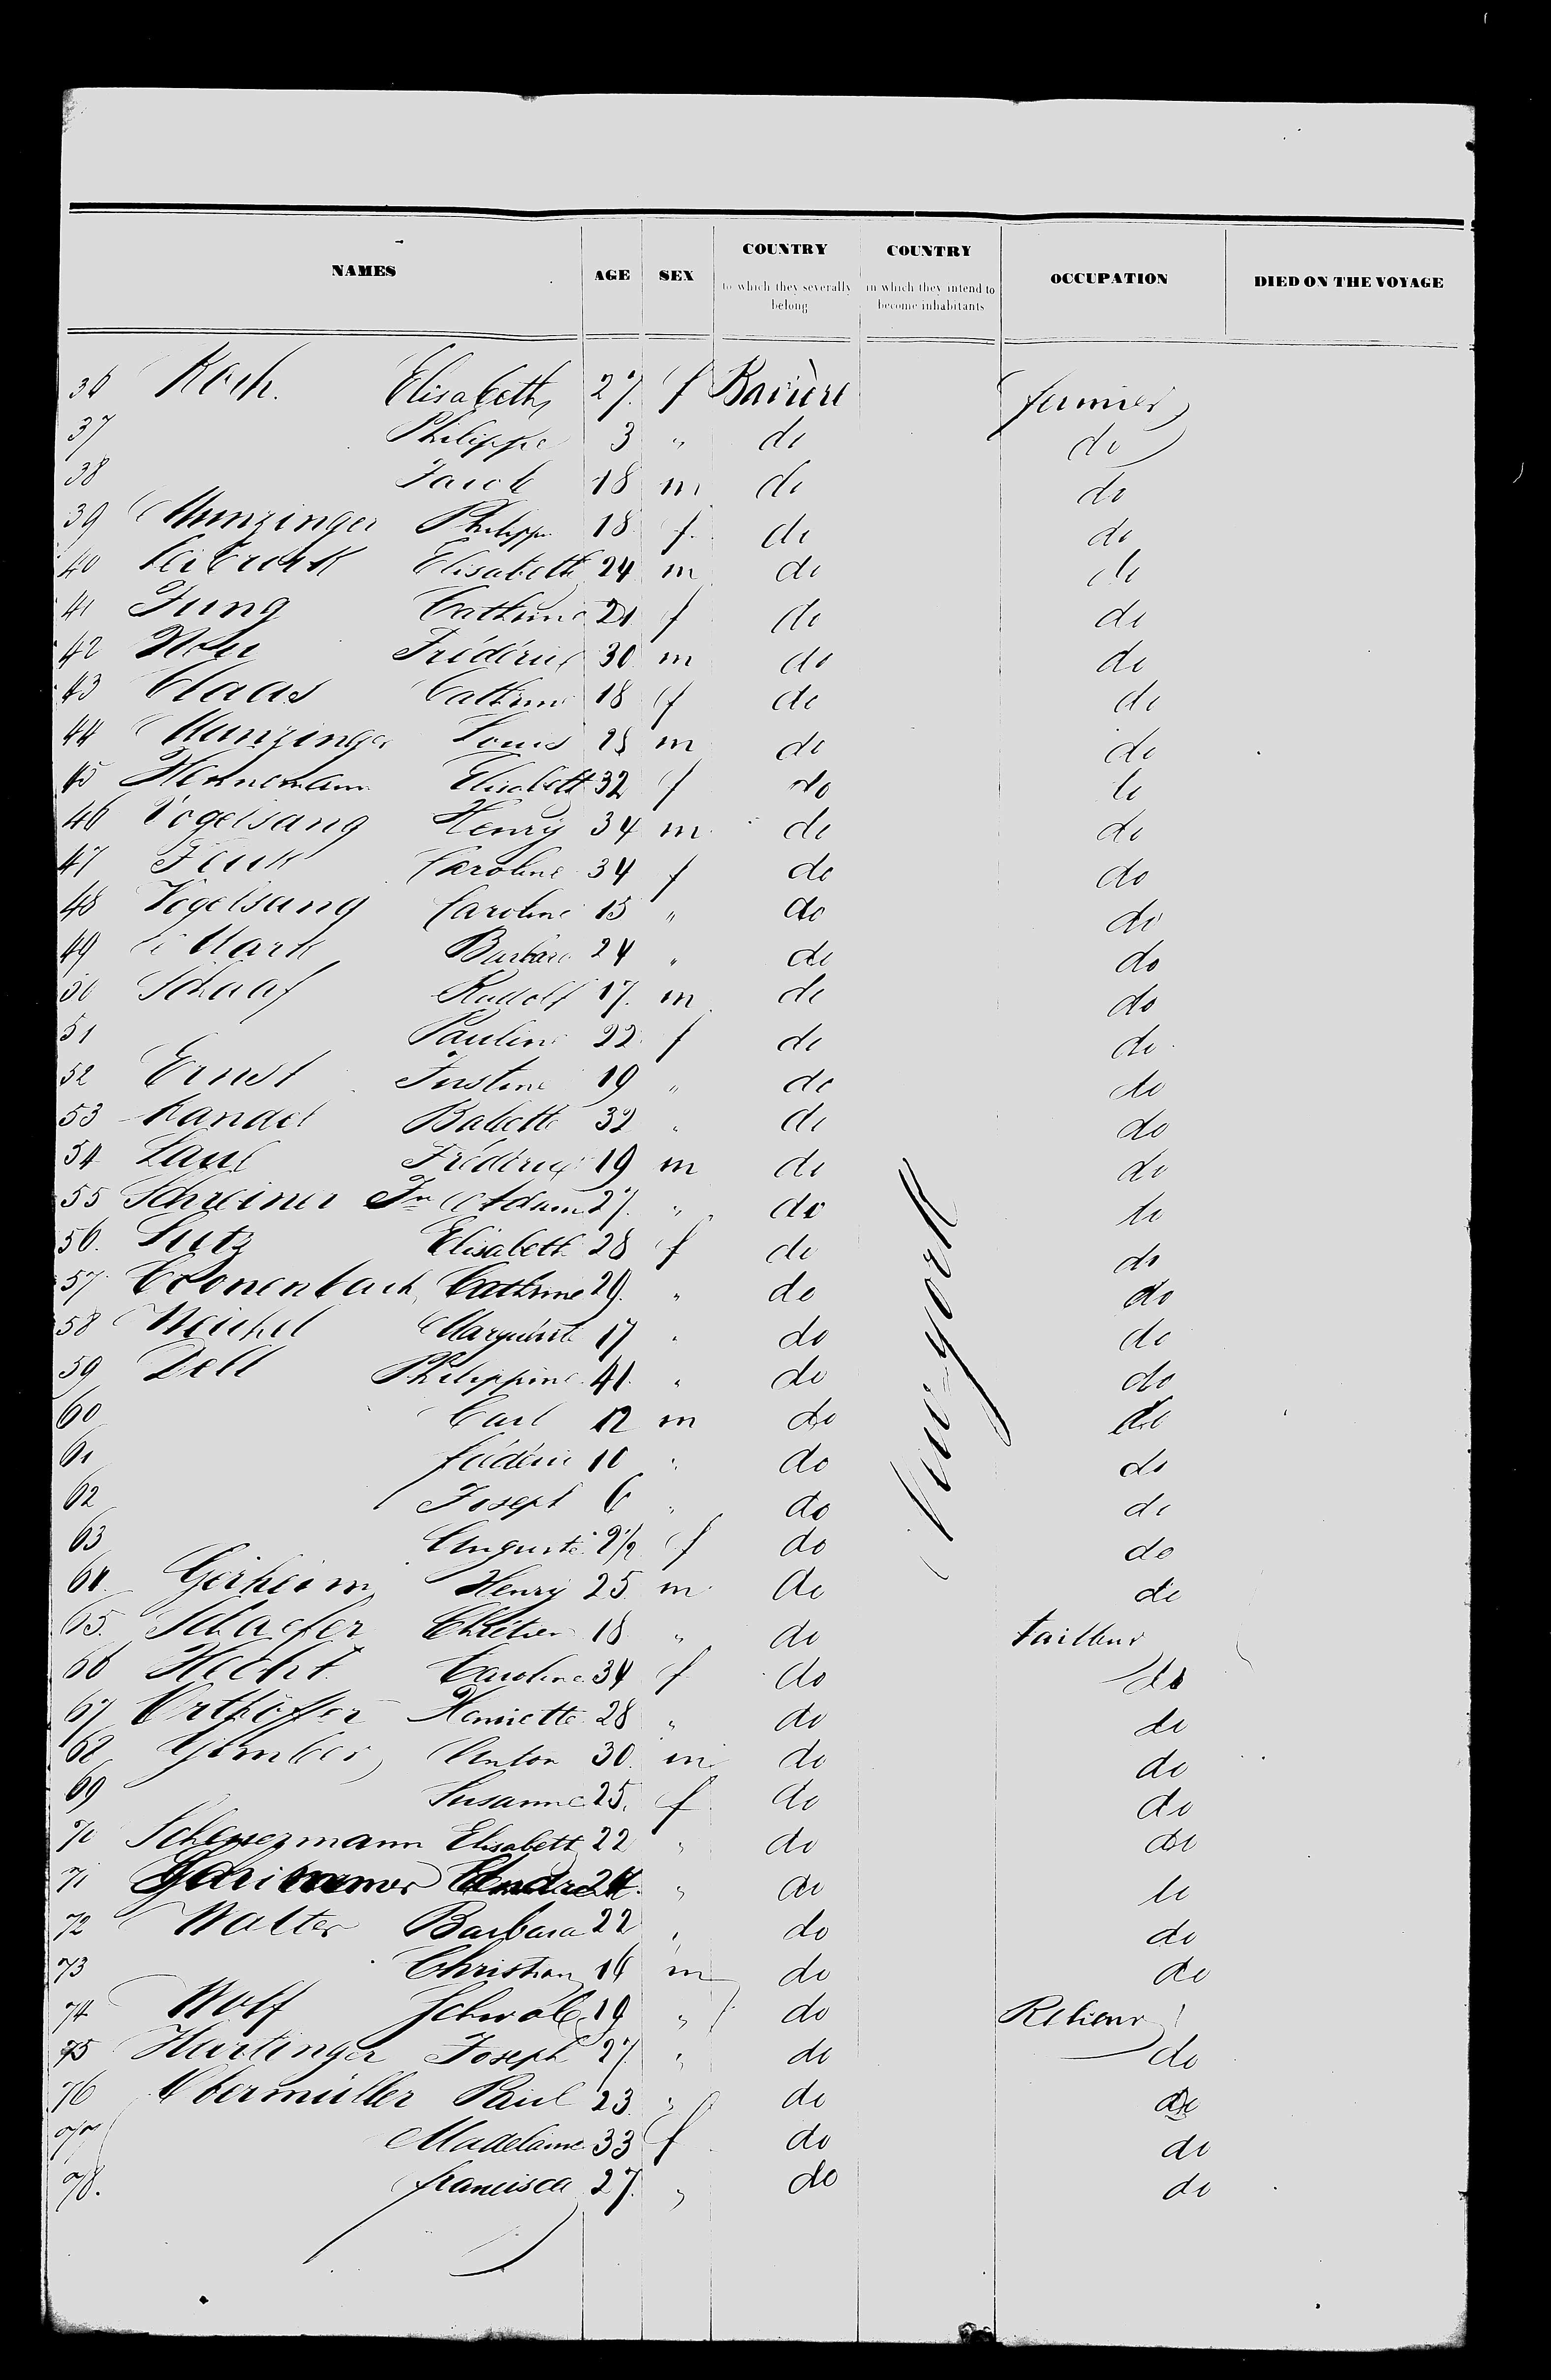 NAMES AGE SEX COUNTRY to which they severally belong COUNTRY in which they intend to become inhabitants OCCUPATION DIED ON THE VOYAGE
36 Koch. Elisabeth 27. f Bavière fermier
37 Philippe 3 " do do
38 Jacob 18 m do do
39 Munzinger Philipp 18 f. do do
40 Leibrock Elisabeth 24 m do do
41 Jung Cathrine 21 f do do
42 Frédéric 30 m do do
43 Claas Cathrine 18 f do do
44 Munzinger Louis 25 m do do
45 Hennemann Elisabeth 32 f do do
46 Vogelsang Henry 34 m do do
47 Caroline 34 f do do
48 Vogelsang Caroline 15 " do do
49 Mark Barbara 24 " do do
50 Schaaf Rudolf 17. m do do
51 Pauline 22 f do do
52 Ernst Justine 19 " do do
53 Kandel Babette 32 " do do
54 Laul Frédéric 19 m do do
55 Schreiner Fr Adam 27. " do do
56. Lutz Elisabeth 28 f do do
57 Cronenbach Cathrine 29. " do do
58 Weichel Marguerite 17 " do do
59 Dell Philippine 41 " do do
60 Carl 12 m do do
61 fréderic 10 " do do
62 Joseph 6 " do do
63 Auguste 2 1/2 f do do
64. Gerheim Henry 25 m do do
65. Schaefer Chrétien 18 " do tailleur
66 Hecht Caroline 34 f do do
67 Orthoffer Henriette 28 " do do
68 Gimber Anton 30 m do do
69 Susanne 25. f do do
70 Scheuermann Elisabeth 22 " do do
71 24. " do do
72 Walter Barbara 22 " do do
73 Christian 16 m do do
74 Wolf Schwab 19 " do Relieur
75 Hartinger Joseph 27. " do do
76 Obermüller Paul 23 " do do
77 Madelaine 33 f do do
78. francisca 27. " do do
Newyork